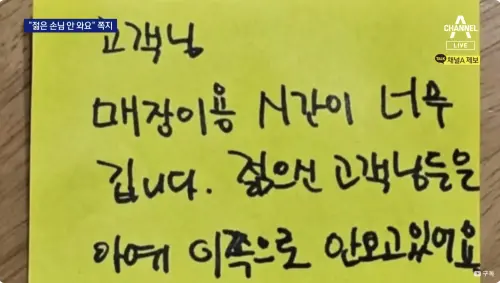 "젊은 손님 안 와요" 쪽지
CHANNEL A
LIVE
TALK 채널A 제보
고객님
매장이용 시간이 너무
깁니다. 젊으신 고객님들은
아예 이쪽으로 안오고있어요
구독